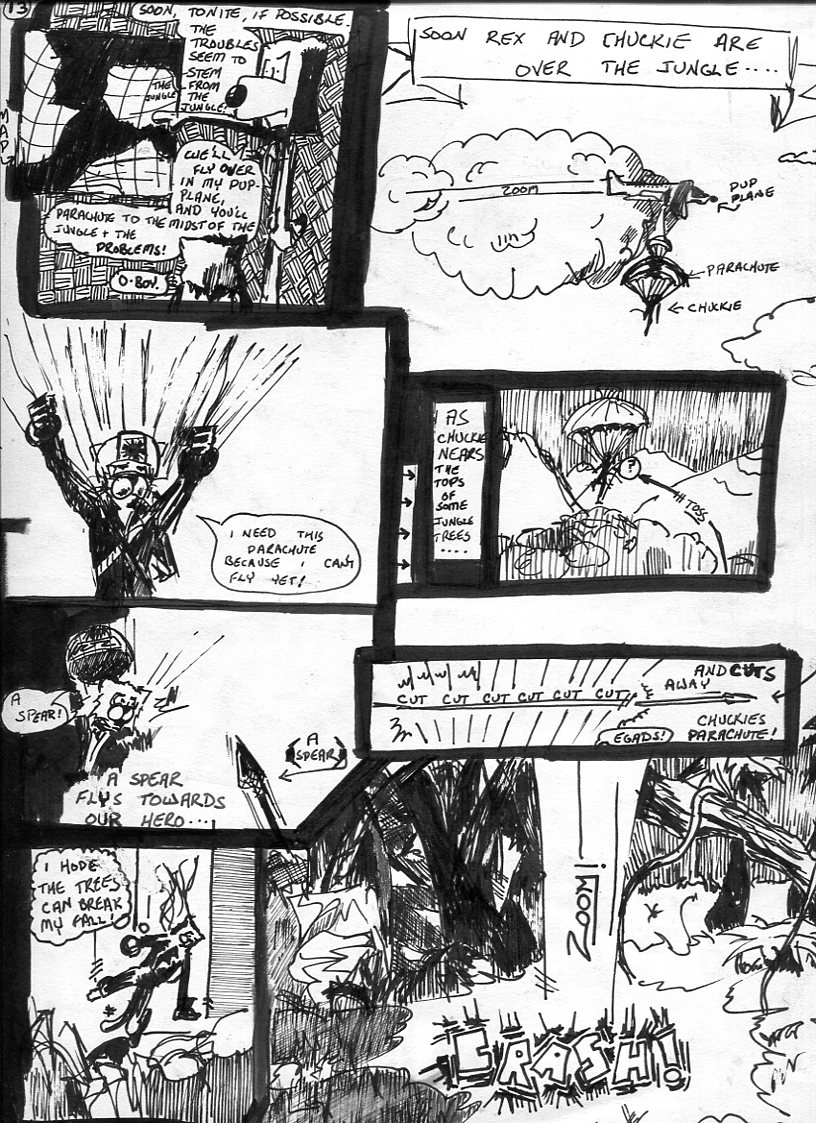 13
SOON, TONITE, IF POSSIBLE.
THE
TROUBLES
SEEM TO
STEM
FROM
THE
JUNGLE!
THE
JUNGLE
MAP
WE'LL
FLY OVER
IN MY PUP-
PLANE,
AND YOU'LL
PARACHUTE TO THE MIDST OF THE
JUNGLE + THE
PROBLEMS!
O-BOY.
SOON REX AND CHUCKIE ARE
OVER THE JUNGLE....
ZOOM
PUP
PLANE
PARACHUTE
CHUCKIE
I NEED THIS
PARACHUTE
BECAUSE I CAN'T
FLY YET!
AS
CHUCKIE
NEARS
THE
TOPS
OF
SOME
JUNGLE
TREES
....
?
TOSS
A
SPEAR!
A
SPEAR
A SPEAR
FLYS TOWARDS
OUR HERO...
AND CUTS
AWAY
CUT CUT CUT CUT CUT CUT
CHUCKIES
PARACHUTE!
EGADS!
I HOPE
THE TREES
CAN BREAK
MY FALL!
ZOOM!
CRASH!